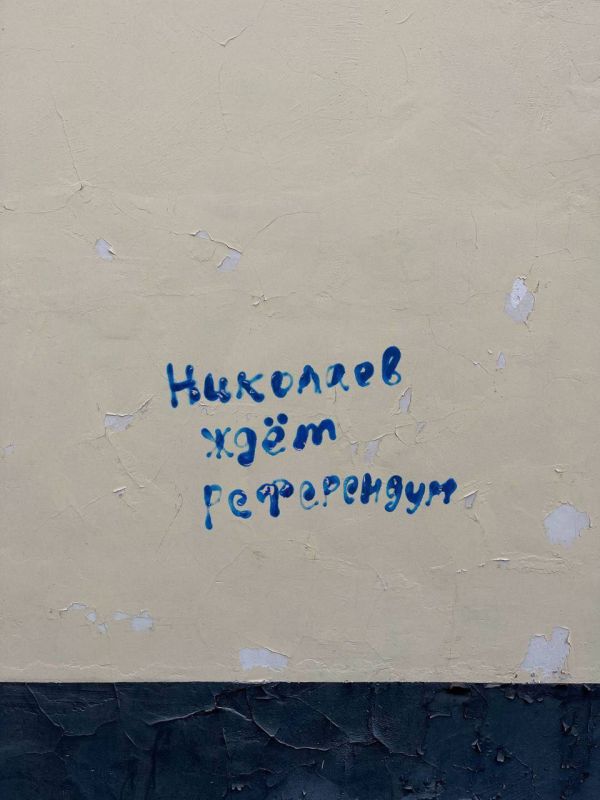 Николаев
ждёт
референдум